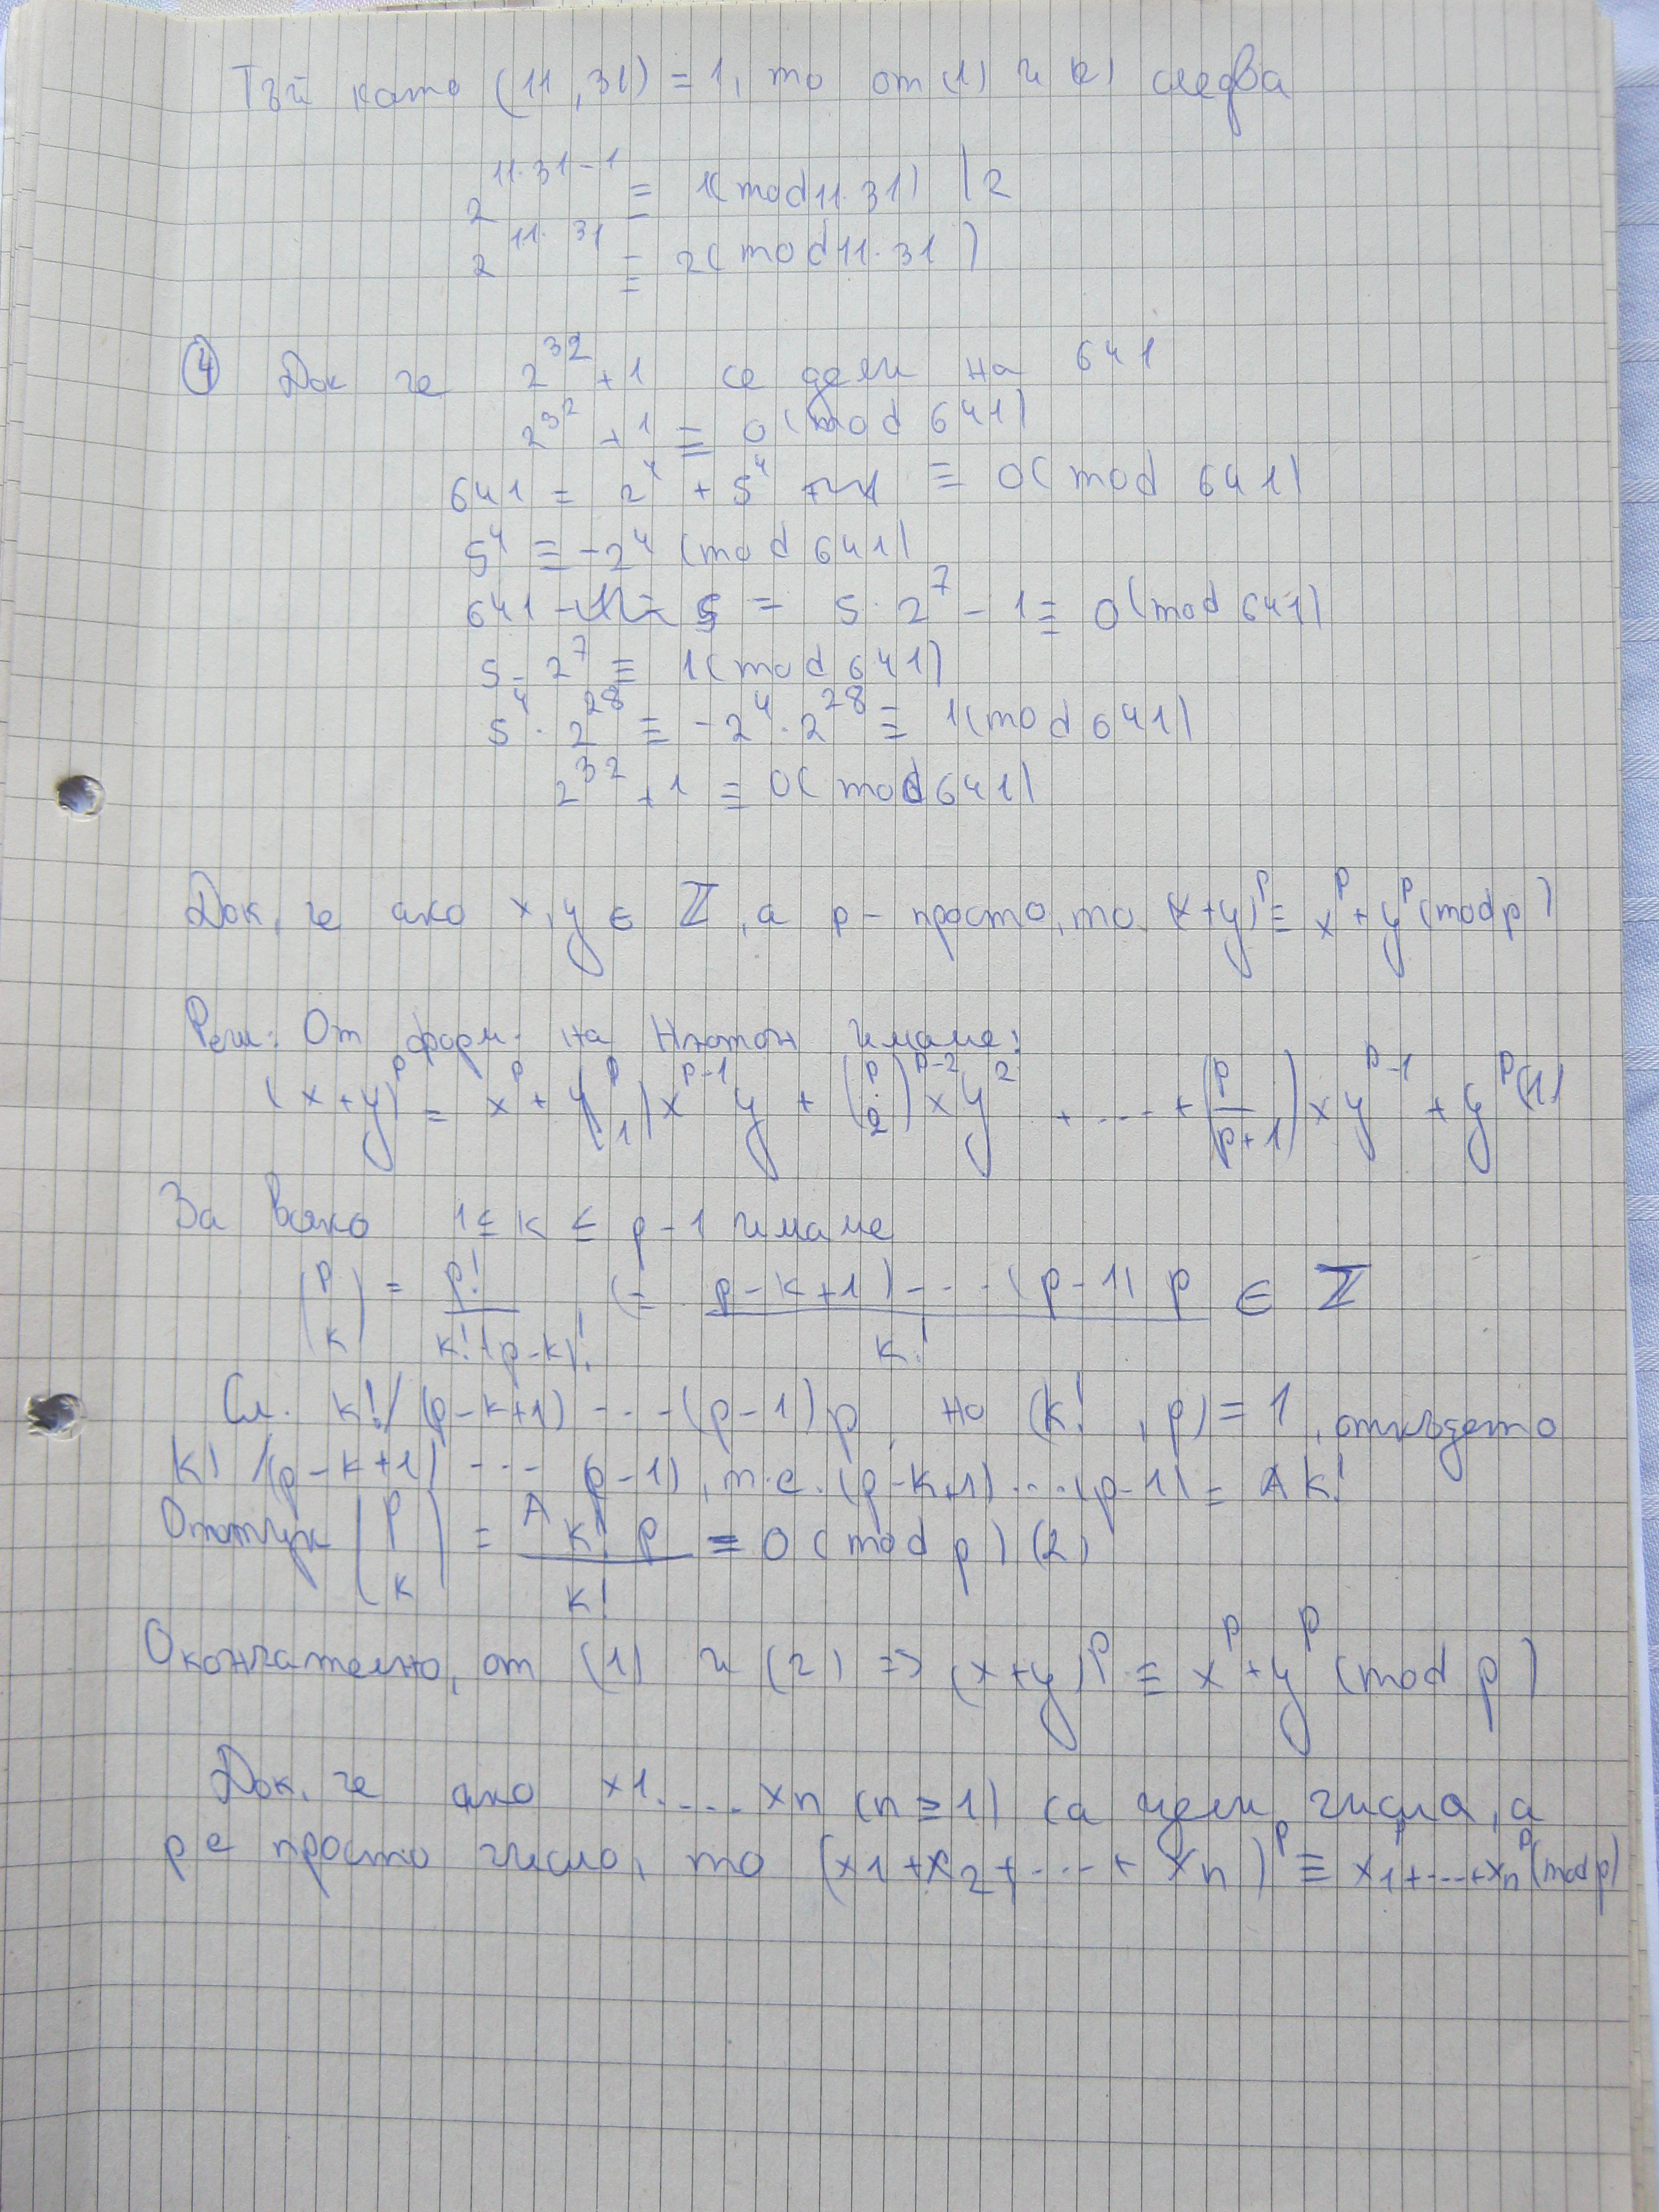 Тъй като (11, 31) = 1, то от (1) и (2) следва
2^{11.31-1} ≡ 1(mod 11.31) |2
2^{11.31} ≡ 2(mod 11.31)
④ Док че 2^{32} + 1 се дели на 641
2^{32} + 1 ≡ 0(mod 641)
641 = 2^4 + 5^4 ≡ 0(mod 641)
5^4 ≡ -2^4 (mod 641)
641 = 5.2^7 - 1 ≡ 0(mod 641)
5.2^7 ≡ 1(mod 641)
5^4.2^{28} ≡ -2^4.2^{28} ≡ 1(mod 641)
2^{32} + 1 ≡ 0(mod 641)
Док. че ако x, y ∈ ℤ, а p - просто, то (x+y)^p ≡ x^p + y^p (mod p)
Реш: От форм. на Нютон имаме:
(x+y)^p = x^p + y(^p_1)x^{p-1}y + (^p_2)^{p-2}xy^2 + .... + (p/p+1)xy^{p-1} + y^p (1)
За всяко 1 ≤ k ≤ p-1 имаме
(^p_k) = p!/k!(p-k)! (= p-k+1)....(p-1)p/k! ∈ ℤ
Сл. k!/(p-k+1)....(p-1)p, но (k!, p) = 1, откъдето
k! /(p-k+1)....(p-1), т.е. (p-k+1)...(p-1) = A k!
Оттук (^p_k) = A k! p/k! ≡ 0 (mod p) (2)
Окончателно, от (1) и (2) => (x+y)^p ≡ x^p + y^p (mod p)
Док. че ако x1.....xn (n ≥ 1) са цели числа, а
p е просто число, то (x1+x2+....+xn)^p ≡ x1^p+....+xn^p (mod p)